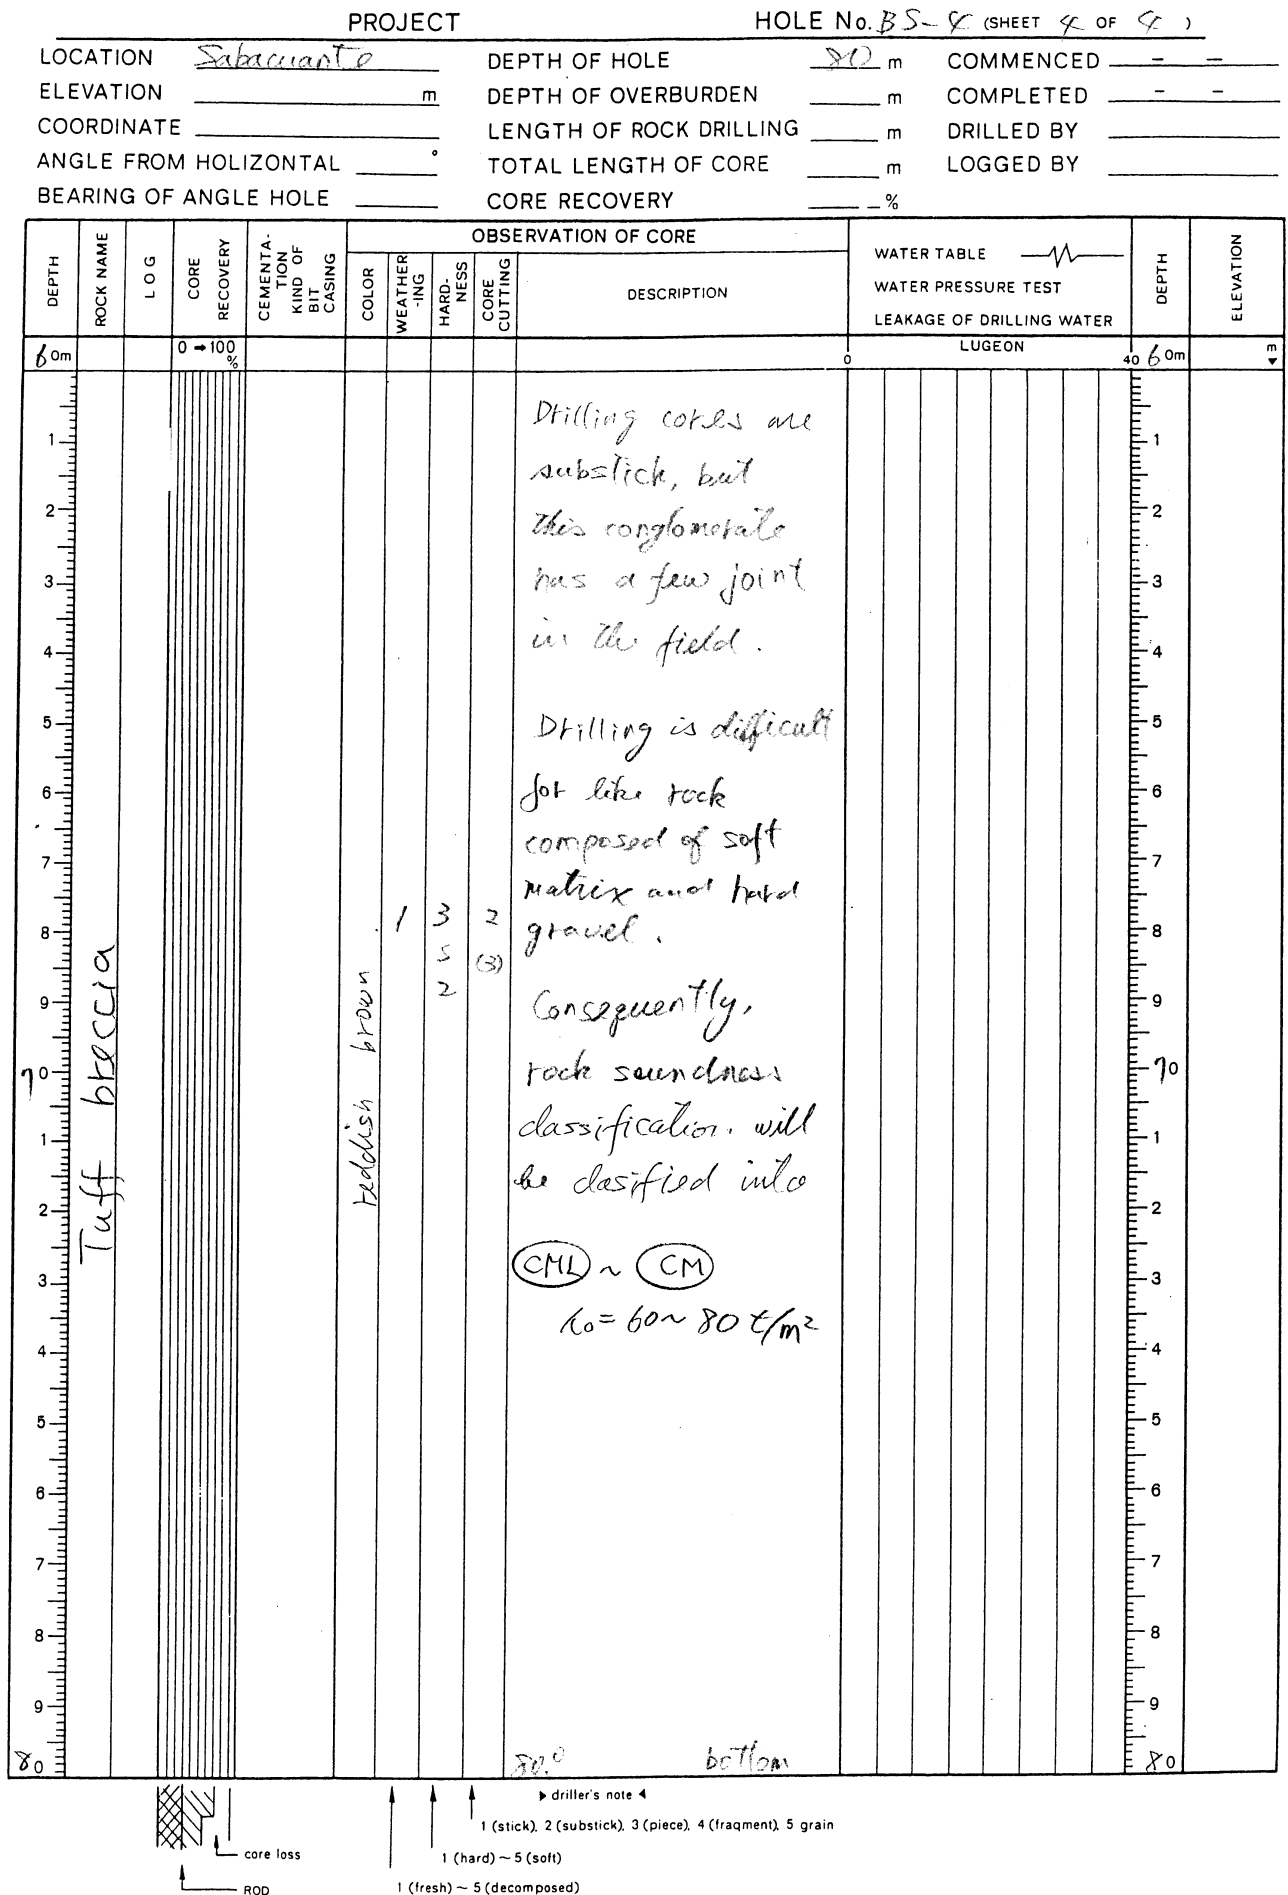 PROJECT
HOLE No. BS-4 (SHEET 4 OF 4 )
LOCATION Sabacuante
DEPTH OF HOLE 80 m
COMMENCED – –
ELEVATION m
DEPTH OF OVERBURDEN m
COMPLETED – –
COORDINATE
LENGTH OF ROCK DRILLING m
DRILLED BY
ANGLE FROM HOLIZONTAL °
TOTAL LENGTH OF CORE m
LOGGED BY
BEARING OF ANGLE HOLE
CORE RECOVERY %
DEPTH
ROCK NAME
LOG
CORE RECOVERY
CEMENTA-
TION
KIND OF
BIT
CASING
OBSERVATION OF CORE
COLOR
WEATHER
-ING
HARD-
NESS
CORE
CUTTING
DESCRIPTION
WATER TABLE
WATER PRESSURE TEST
LEAKAGE OF DRILLING WATER
DEPTH
ELEVATION
60m
0 → 100
%
0
LUGEON
40
60m
m
1
2
3
4
5
6
7
8
9
70
1
2
3
4
5
6
7
8
9
80
Tuff breccia
reddish brown
1
3
5
2
2
(3)
Drilling cores are
substick, but
this conglomerate
has a few joint
in the field.
Drilling is difficult
for like rock
composed of soft
matrix and hard
gravel.
Consequently,
rock soundness
classification. will
be clasified into
CML ~ CM
= 60~80 t/m²
80.0 bottom
1
2
3
4
5
6
7
8
9
70
1
2
3
4
5
6
7
8
9
80
▶ driller's note ◀
1 (stick), 2 (substick), 3 (piece), 4 (fraqment), 5 grain
core loss
1 (hard) ~ 5 (soft)
ROD
1 (fresh) ~ 5 (decomposed)